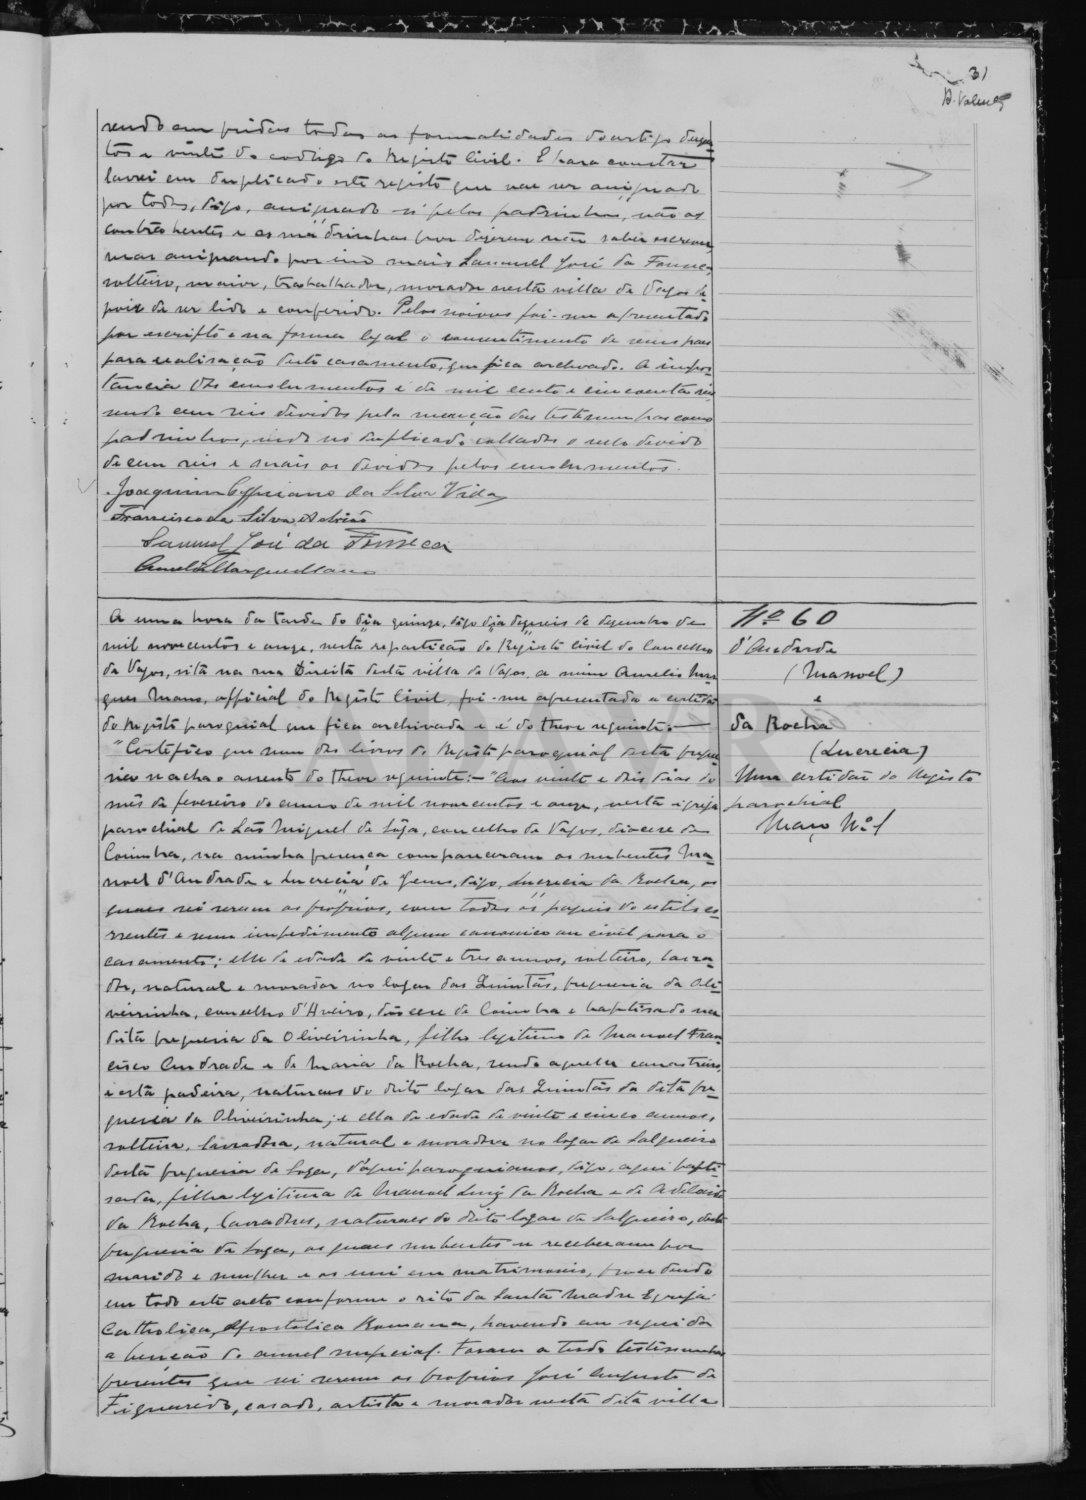 31
A. Valente
sendo cumpridas todas as formalidades do artigo duzen-
tos e vinte do codigo do Registo Civil. E para constar
lavrei em duplicado este registo que vae ser assignado
por todos, digo, assignado só pelos padrinhos, não os
contrahentes e as madrinhas por dizerem não saber escrever
mas assignando por uma mais Samuel José da Fonseca,
solteiro, maior, trabalhador, morador nesta villa de Vagos de-
pois de ser lido e conferido. Pelos noivos foi-me apresentado
por escripto e na forma legal o consentimento de seus paes
para realisação deste casamento, que fica archivado. A impor-
tancia dos emolumentos é de mil cento e cincoenta reis
sendo cem reis devidos pela menção das testemunhas como
padrinhos, indo no duplicado collados o sello devido
de cem reis e mais os devidos pelos emolumentos.
Joaquim Cypriano da Silva Vidas
Francisco da Silva
Samuel José da Fonseca
Aurelio Marques Mano
A uma hora da tarde do dia quinze, digo dia dezeseis de dezembro de
mil novecentos e onze, nesta repartição do Registo Civil do Concelho
de Vagos, sita na rua Direita desta villa de Vagos, a mim Aurelio Mar-
ques Mano, official do Registo Civil, foi-me apresentada a certidão
do Registo paroquial que fica archivada e é do theor seguinte:—
"Certifico que num dos livros do Registo paroquial desta fregue-
sia se acha o assento do theor seguinte:— "Aos vinte e dois dias do
mês de fevereiro do anno de mil novecentos e onze, nesta igreja
parochial de São Miguel de Sôza, concelho de Vagos, diocese de
Coimbra, na minha presença compareceram os nubentes Ma-
noel d'Andrade e Lucrecia de Jesus, digo, Lucrecia da Rocha, os
quaes sei serem os proprios, com todos os papeis do estilo co-
rrentes e sem impedimento algum canonico ou civil para o
casamento; elle de edade de vinte e tres annos, solteiro, lavra-
dor, natural e morador no logar das Quintãs, freguesia da Oli-
veirinha, concelho d'Aveiro, diocese de Coimbra e baptisado na
dita freguesia da Oliveirinha, filho legitimo de Manoel Fran-
cisco Andrade e de Maria da Rocha, sendo aquelle canastreiro,
e esta padeira, naturaes do dito logar das Quintãs da dita fre-
guesia da Oliveirinha; e ella de edade de vinte e cinco annos,
solteira, lavradora, natural e moradora no logar de Salgueiro
desta freguesia de Soza, d'aqui paroquianos, digo, aqui bapti-
sada, filha legitima de Manoel Luiz da Rocha e de Adelaide
da Rocha, lavradores, naturaes do dito logar de Salgueiro, desta
freguesia de Soza, os quaes nubentes se receberam por
marido e mulher e os uni em matrimonio, procedendo
em todo este acto conforme o rito da Santa Madre Egreja
Catholica, Apostolica Romana, havendo em seguida
a benção do annel nupcial. Foram a tudo testemunhas
presentes que sei serem os proprios José Augusto de
Figueiredo, casado, artista e morador nesta dita villa
Nº 60
d'Andrade
(Manoel)
e
da Rocha
(Lucrecia)
Uma certidão do Registo
parochial
Maço Nº 1